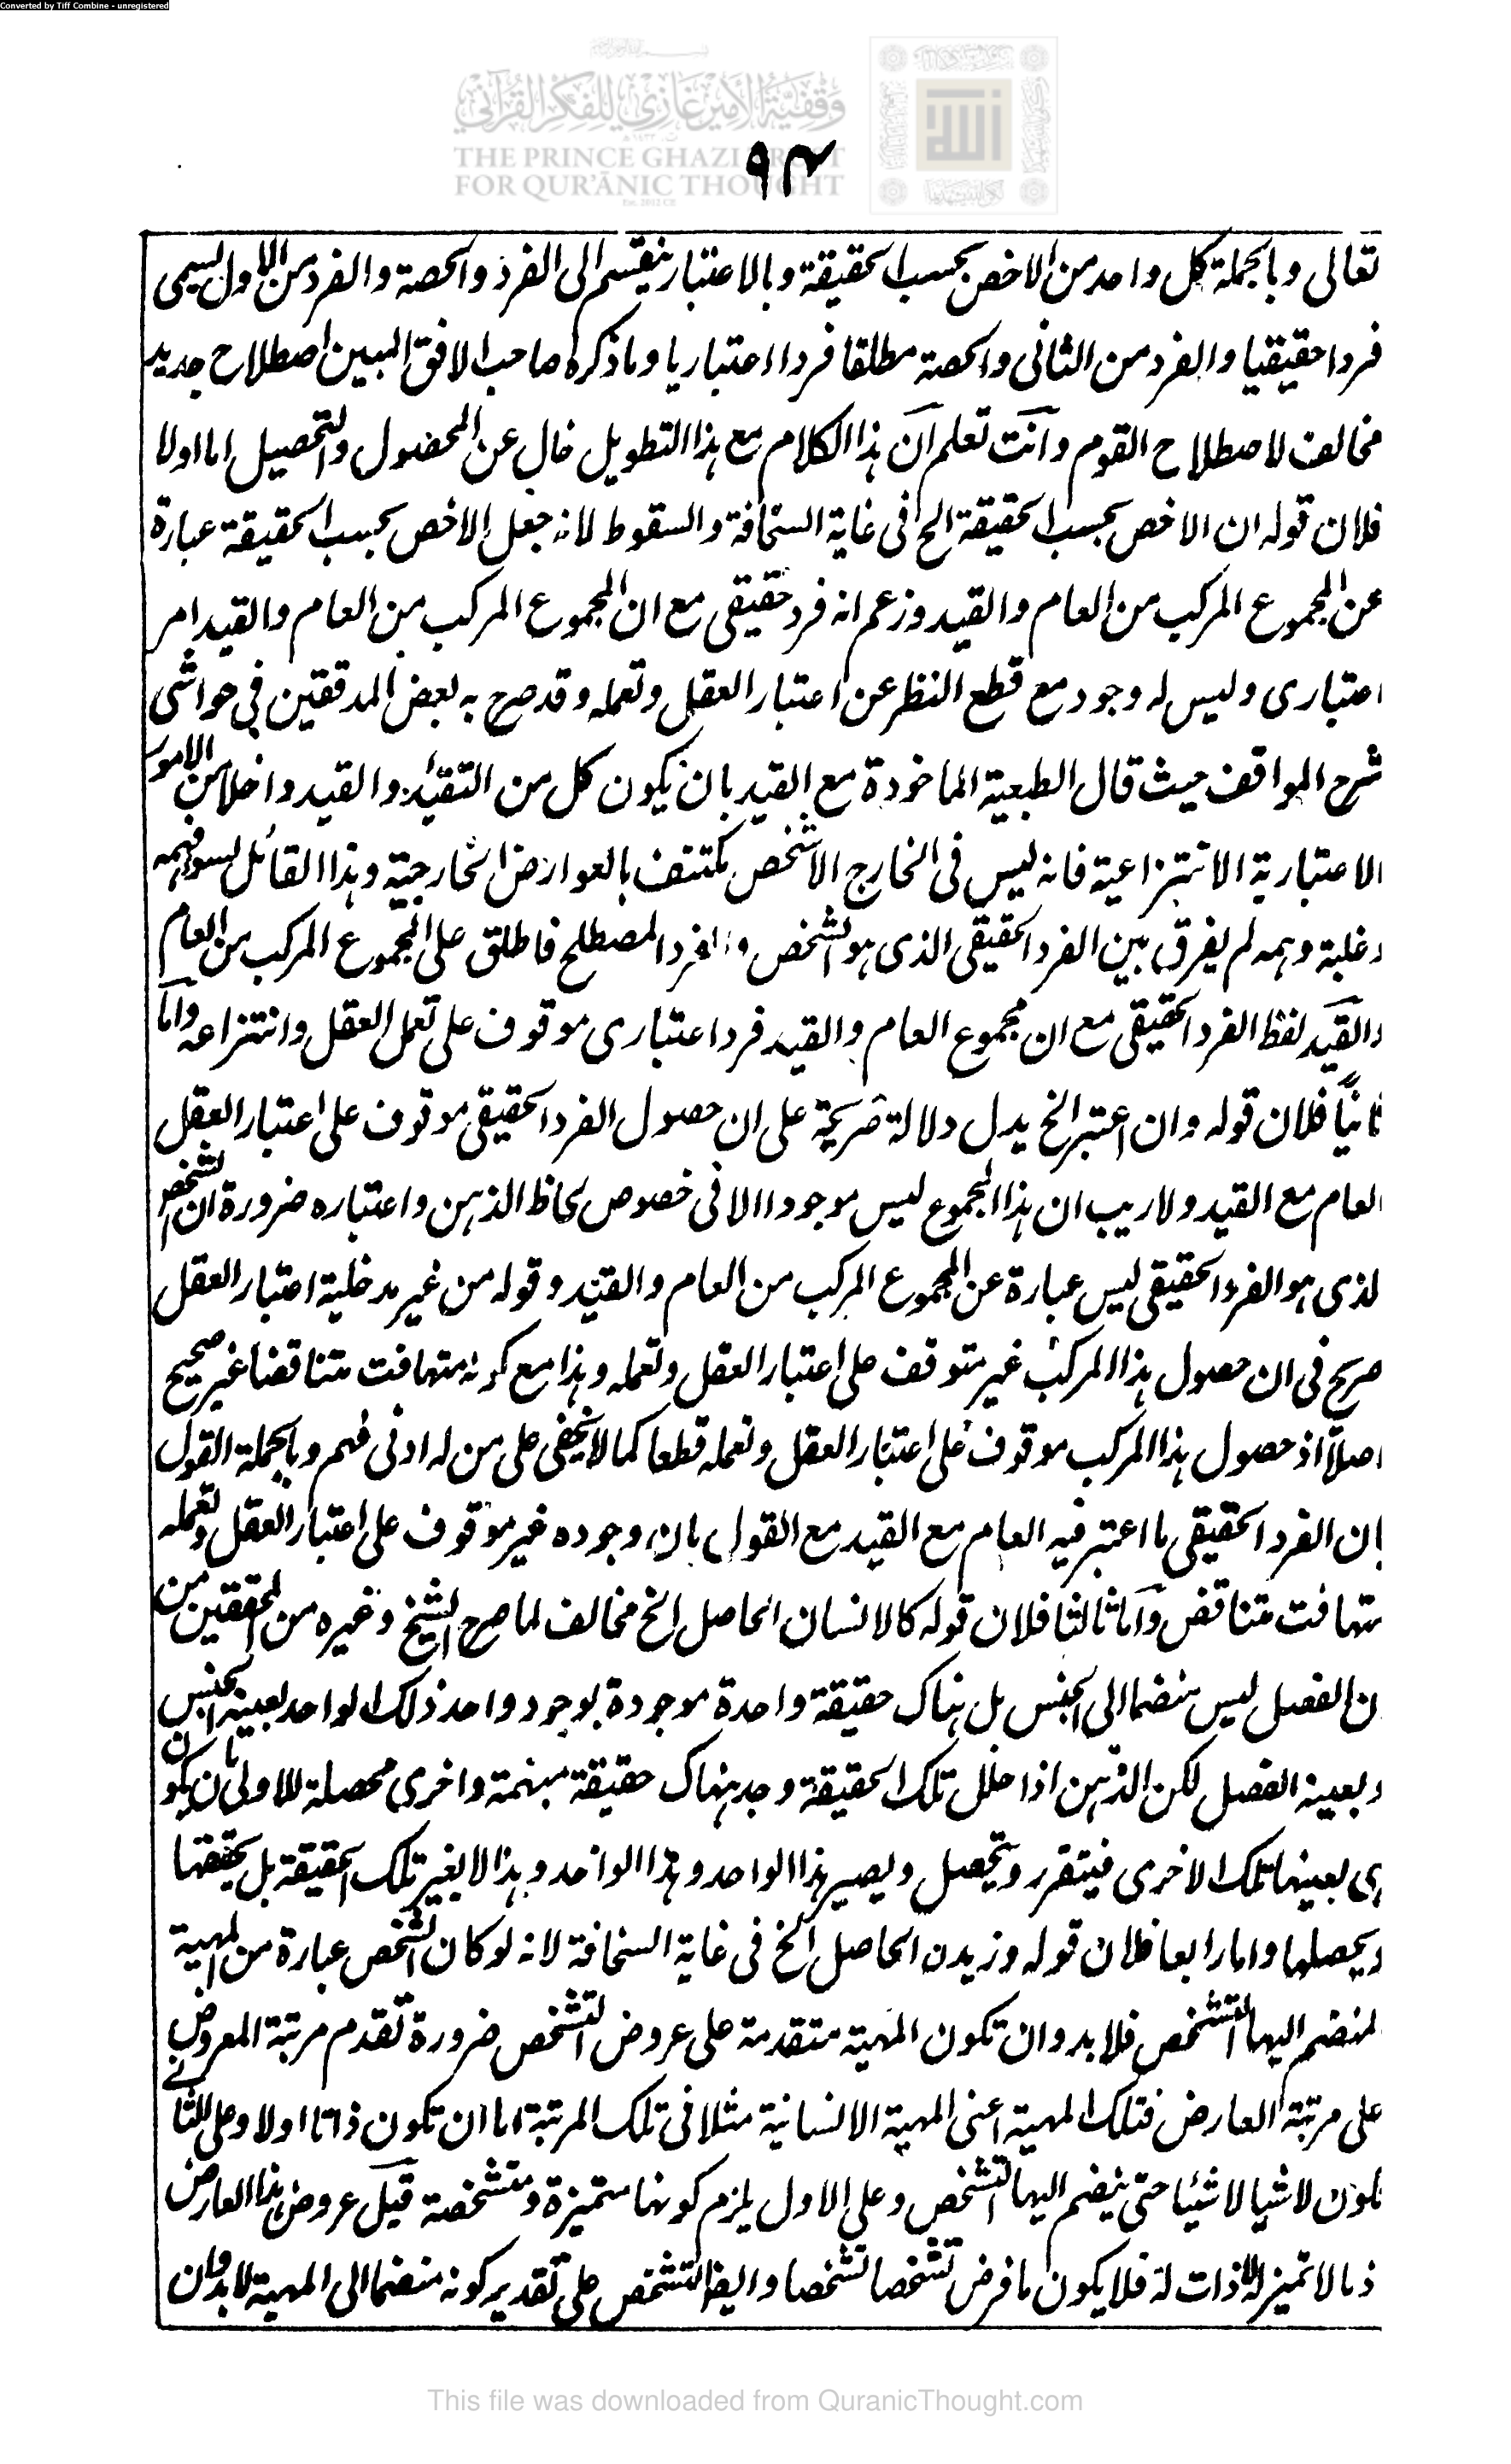 Converted by Tiff Combine - unregistered
وَقْفِيَّةُ الأَمِيرِ غَازِي لِلْفِكْرِ القُرْآنِيِّ
THE PRINCE GHAZI TRUST
FOR QUR'ĀNIC THOUGHT
٩٤
تعالى وبالجملة كل واحد من الاخص بحسب الحقيقة وبالاعتبار ينقسم الى الفرد والحصة والفرد من الاول يسمى
فردا حقيقيا والفرد من الثانى والحصة مطلقا فردا اعتباريا وما ذكره صاحب الافق المبين اصطلاح جديد
مخالف لاصطلاح القوم وانت تعلم ان هذا الكلام مع هذا التطويل خال عن المحصول والتحصيل اما اولا
فلان قوله ان الاخص بحسب الحقيقة الخ فى غاية السخافة والسقوط لانه جعل الاخص بحسب الحقيقة عبارة
عن المجموع المركب من العام والقيد وزعم انه فرد حقيقى مع ان المجموع المركب من العام والقيد امر
اعتبارى وليس له وجود مع قطع النظر عن اعتبار العقل وتعمله وقد صرح به بعض المدققين فى حواشى
شرح المواقف حيث قال الطبعية الماخوذة مع القيد بان يكون كل من التقيد والقيد داخلا من الامور
الاعتبارية الانتزاعية فانه ليس فى الخارج الا شخص مكتنف بالعوارض الخارجية وهذا القائل لسوء فهمه
وغلبة وهمه لم يفرق بين الفرد الحقيقى الذى هو الشخص والفرد المصطلح فاطلق على المجموع المركب من العام
والقيد لفظ الفرد الحقيقى مع ان مجموع العام والقيد فرد اعتبارى موقوف على تعمل العقل وانتزاعه واما
ثانيًا فلان قوله وان اعتبر الخ يدل دلالة صريحة على ان حصول الفرد الحقيقى موقوف على اعتبار العقل
العام مع القيد ولا ريب ان هذا المجموع ليس موجودا الا فى خصوص لحاظ الذهن واعتباره ضرورة ان الشخص
لذى هو الفرد الحقيقى ليس عبارة عن المجموع المركب من العام والقيد وقوله من غير مدخلية اعتبار العقل
صريح فى ان حصول هذا المركب غير متوقف على اعتبار العقل وتعمله وهذا مع كونه متهافت متناقضا غير صحيح
اصلا اذ حصول هذا المركب موقوف على اعتبار العقل وتعمله قطعا كما لا يخفى على من له ادنى فهم وبالجملة القول
بان الفرد الحقيقى ما اعتبر فيه العام مع القيد مع القول بان وجوده غير موقوف على اعتبار العقل وتعمله
متهافت متناقض واما ثالثا فلان قوله كالانسان الحاصل الخ مخالف لما صرح الشيخ وغيره من المحققين من
ن الفصل ليس منضما الى الجنس بل هناك حقيقة واحدة موجودة بوجود واحد ذلك الواحد بعينه الجنس
وبعينه الفصل لكن الذهن اذا حلل تلك الحقيقة وجد هناك حقيقة مبهمة واخرى محصلة للاولى بان يكون
هى بعينها تلك الاخرى فيتقرر ويتحصل ويصير هذا الواحد وهذا الواحد وهذا لا يغير تلك الحقيقة بل يحققها
ويحصلها واما رابعا فلان قوله وزيد ن الحاصل الخ فى غاية السخافة لانه لو كان الشخص عبارة من المهية
لمنضم اليها التشخص فلا بد وان تكون المهية متقدمة على عروض التشخص ضرورة تقدم مرتبة المعروض
على مرتبة العارض فتلك المهية اعنى المهية الانسانية مثلا فى تلك المرتبة اما ان تكون ذاتا اولا وعلى الثانى
تكون لا شيا لا شيئا حتى ينضم اليها التشخص وعلى الاول يلزم كونها متميزة ومتشخصة قبل عروض هذا العارض
ذ ما لا تميز له لا ذات له فلا يكون ما فرض تشخصا تشخصا وايضا التشخص على تقدير كونه منضما الى المهية لا بد وان
This file was downloaded from QuranicThought.com